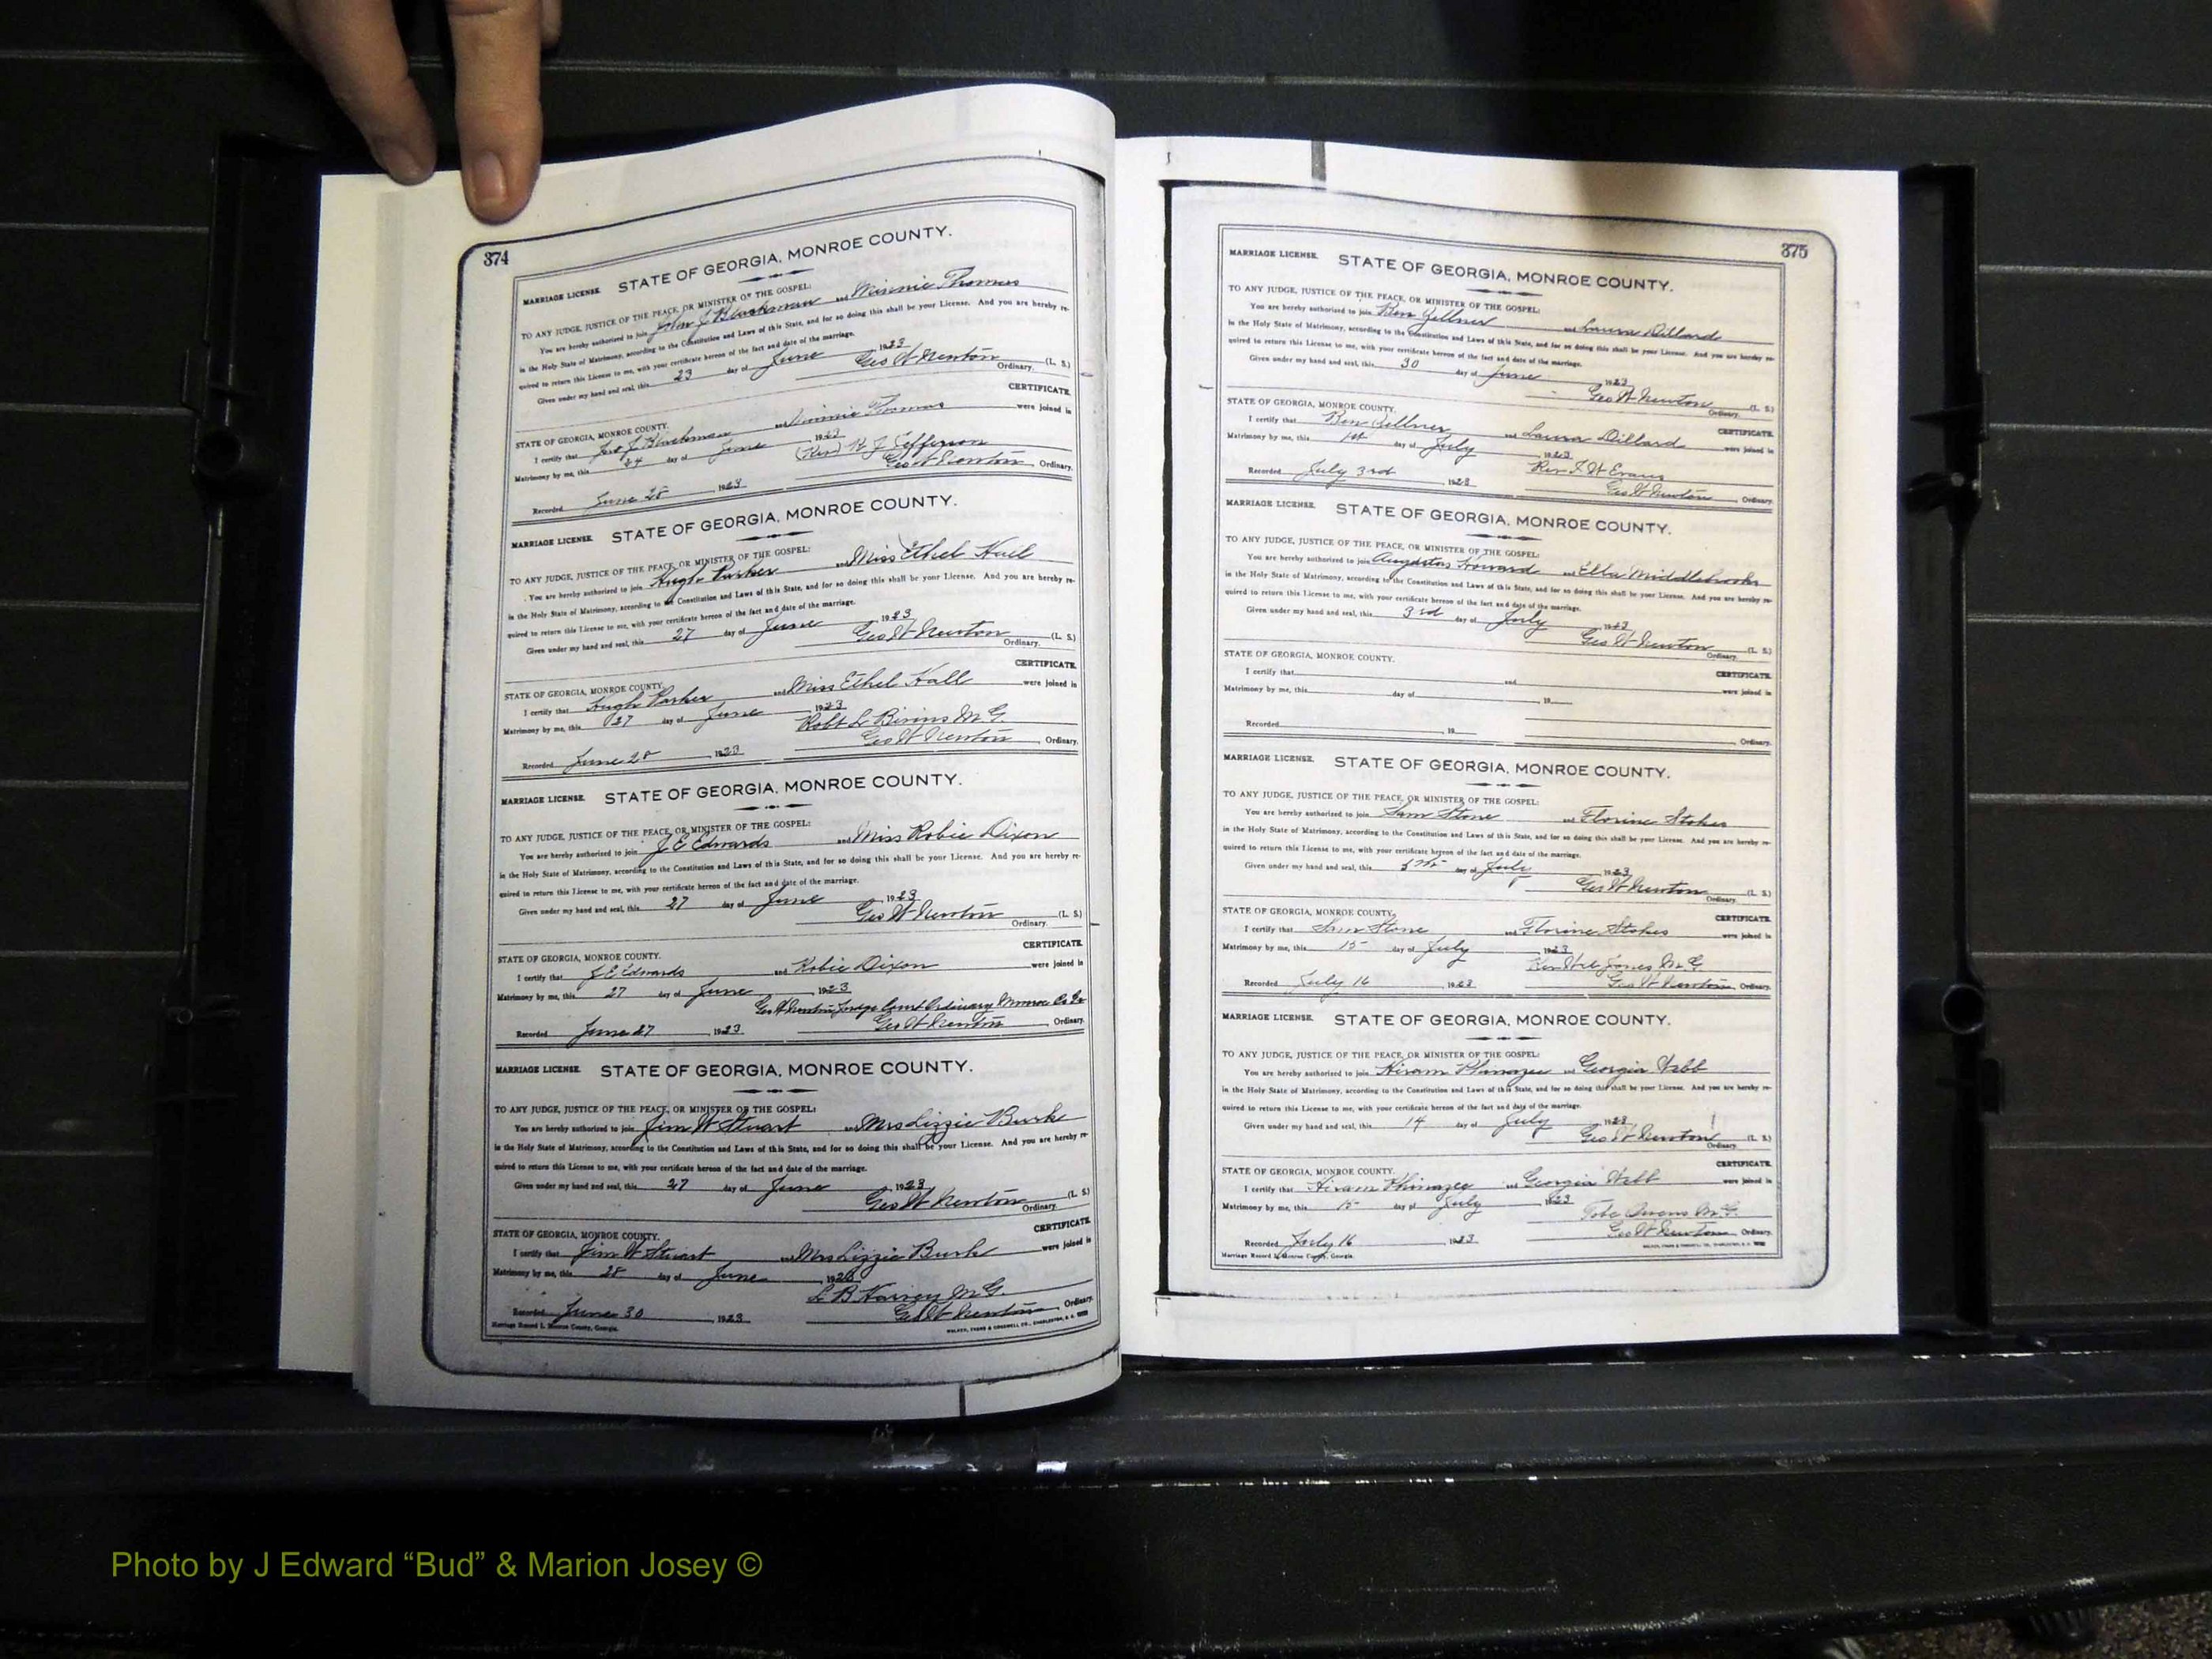 374
MARRIAGE LICENSE. STATE OF GEORGIA, MONROE COUNTY.
TO ANY JUDGE, JUSTICE OF THE PEACE, OR MINISTER OF THE GOSPEL:
You are hereby authorized to join John J Blackman and Minnie Thomas
in the Holy State of Matrimony, according to the Constitution and Laws of this State, and for so doing this shall be your License. And you are hereby re-
quired to return this License to me, with your certificate hereon of the fact and date of the marriage.
Given under my hand and seal, this 23 day of June 1923
Geo W Newton (L. S.)
Ordinary.
CERTIFICATE.
STATE OF GEORGIA, MONROE COUNTY.
I certify that Jno J Blackman and Minnie Thomas were joined in
Matrimony by me, this 24 day of June, 1923
(Rev) R J Jefferson
Recorded June 28, 1923 Geo W Newton, Ordinary.
MARRIAGE LICENSE. STATE OF GEORGIA, MONROE COUNTY.
TO ANY JUDGE, JUSTICE OF THE PEACE, OR MINISTER OF THE GOSPEL:
You are hereby authorized to join Hugh Parker and Miss Ethel Hall
in the Holy State of Matrimony, according to the Constitution and Laws of this State, and for so doing this shall be your License. And you are hereby re-
quired to return this License to me, with your certificate hereon of the fact and date of the marriage.
Given under my hand and seal, this 27 day of June, 1923
Geo W Newton (L. S.)
Ordinary.
CERTIFICATE.
STATE OF GEORGIA, MONROE COUNTY.
I certify that Hugh Parker and Miss Ethel Hall were joined in
Matrimony by me, this 27 day of June, 1923
Robt L Bivins M.G.
Recorded June 28, 1923 Geo W Newton, Ordinary.
MARRIAGE LICENSE. STATE OF GEORGIA, MONROE COUNTY.
TO ANY JUDGE, JUSTICE OF THE PEACE, OR MINISTER OF THE GOSPEL:
You are hereby authorized to join J E Edwards and Miss Robie Dixon
in the Holy State of Matrimony, according to the Constitution and Laws of this State, and for so doing this shall be your License. And you are hereby re-
quired to return this License to me, with your certificate hereon of the fact and date of the marriage.
Given under my hand and seal, this 27 day of June, 1923
Geo W Newton (L. S.)
Ordinary.
CERTIFICATE.
STATE OF GEORGIA, MONROE COUNTY.
I certify that J E Edwards and Robie Dixon were joined in
Matrimony by me, this 27 day of June, 1923
Geo W Newton Judge Court Ordinary Monroe Co Ga
Recorded June 27, 1923 Geo W Newton, Ordinary.
MARRIAGE LICENSE. STATE OF GEORGIA, MONROE COUNTY.
TO ANY JUDGE, JUSTICE OF THE PEACE, OR MINISTER OF THE GOSPEL:
You are hereby authorized to join Jim W Stuart and Mrs Lizzie Burke
in the Holy State of Matrimony, according to the Constitution and Laws of this State, and for so doing this shall be your License. And you are hereby re-
quired to return this License to me, with your certificate hereon of the fact and date of the marriage.
Given under my hand and seal, this 27 day of June, 1923
Geo W Newton (L. S.)
Ordinary.
CERTIFICATE.
STATE OF GEORGIA, MONROE COUNTY.
I certify that Jim W Stuart and Mrs Lizzie Burke were joined in
Matrimony by me, this 28 day of June, 1923
L B Harvey M.G.
Recorded June 30, 1923 Geo W Newton, Ordinary.
Marriage Record L Monroe County, Georgia. WALKER, EVANS & COGSWELL CO., CHARLESTON, S. C.
375
MARRIAGE LICENSE. STATE OF GEORGIA, MONROE COUNTY.
TO ANY JUDGE, JUSTICE OF THE PEACE, OR MINISTER OF THE GOSPEL:
You are hereby authorized to join Ben Zellner and Laura Dillard
in the Holy State of Matrimony, according to the Constitution and Laws of this State, and for so doing this shall be your License. And you are hereby re-
quired to return this License to me, with your certificate hereon of the fact and date of the marriage.
Given under my hand and seal, this 30 day of June, 1923
Geo W Newton (L. S.)
Ordinary.
STATE OF GEORGIA, MONROE COUNTY. CERTIFICATE.
I certify that Ben Zellner and Laura Dillard were joined in
Matrimony by me, this 1st day of July, 1923
Rev F. H Evans
Recorded July 3rd, 1923 Geo W Newton, Ordinary.
MARRIAGE LICENSE. STATE OF GEORGIA, MONROE COUNTY.
TO ANY JUDGE, JUSTICE OF THE PEACE, OR MINISTER OF THE GOSPEL:
You are hereby authorized to join Augustus Howard and Ella Middlebrooks
in the Holy State of Matrimony, according to the Constitution and Laws of this State, and for so doing this shall be your License. And you are hereby re-
quired to return this License to me, with your certificate hereon of the fact and date of the marriage.
Given under my hand and seal, this 3rd day of July, 1923
Geo W Newton (L. S.)
Ordinary.
STATE OF GEORGIA, MONROE COUNTY. CERTIFICATE.
I certify that and were joined in
Matrimony by me, this day of, 19
Recorded, 19 Ordinary.
MARRIAGE LICENSE. STATE OF GEORGIA, MONROE COUNTY.
TO ANY JUDGE, JUSTICE OF THE PEACE, OR MINISTER OF THE GOSPEL:
You are hereby authorized to join Sam Stone and Florine Stokes
in the Holy State of Matrimony, according to the Constitution and Laws of this State, and for so doing this shall be your License. And you are hereby re-
quired to return this License to me, with your certificate hereon of the fact and date of the marriage.
Given under my hand and seal, this day of July, 1923
Geo W Newton (L. S.)
Ordinary.
STATE OF GEORGIA, MONROE COUNTY. CERTIFICATE.
I certify that Sam Stone and Florine Stokes were joined in
Matrimony by me, this 15 day of July, 1923
Rev Jones M.G.
Recorded July 16, 1923 Geo W Newton, Ordinary.
MARRIAGE LICENSE. STATE OF GEORGIA, MONROE COUNTY.
TO ANY JUDGE, JUSTICE OF THE PEACE, OR MINISTER OF THE GOSPEL:
You are hereby authorized to join Hiram Phinazee and Georgia Webb
in the Holy State of Matrimony, according to the Constitution and Laws of this State, and for so doing this shall be your License. And you are hereby re-
quired to return this License to me, with your certificate hereon of the fact and date of the marriage.
Given under my hand and seal, this 14 day of July, 1923
Geo W Newton (L. S.)
Ordinary.
STATE OF GEORGIA, MONROE COUNTY. CERTIFICATE.
I certify that Hiram Phinazee and Georgia Webb were joined in
Matrimony by me, this 15 day of July, 1923
Tobe Owens M.G.
Recorded July 16, 1923 Geo W Newton, Ordinary.
Marriage Record L Monroe County, Georgia.
Photo by J Edward “Bud” & Marion Josey ©